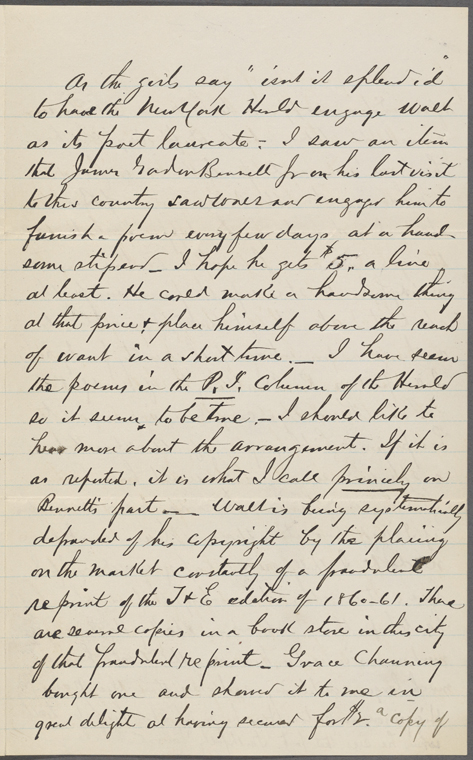 As the girls say "isn't it splendid"
to have the New York Herald engage Walt
as its poet laureate - I saw an item
that James Gordon Bennett Jr on his last visit
to this country saw Walt and engaged him to
furnish a poem every few days at a hand
some stipend - I hope he gets $5. a line
at least. He could make a handsome thing
at that price & place himself above the reach
of want in a short time. - I have seen
the poems in the P. I. Column of the Herald
so it seems to be true. - I should like to
hear more about the arrangement. If it is
as reported, it is what I call princely on
Bennett's part - Walt is being systematically
defrauded of his copyright by the placing
on the market constantly of a fraudulent
reprint of the T & E edition of 1860-61. There
are several copies in a book store in this city
of that fraudulent reprint - Grace Channing
bought one and showed it to me in
great delight at having secured for $2. a copy of